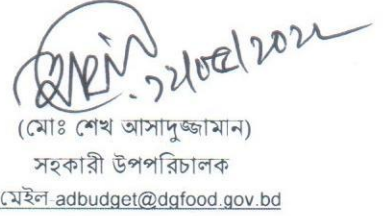 ১২/০৫/২০২২
(মোঃ শেখ আসাদুজ্জামান)
সহকারী উপপরিচালক
মেইল-adbudget@dgfood.gov.bd